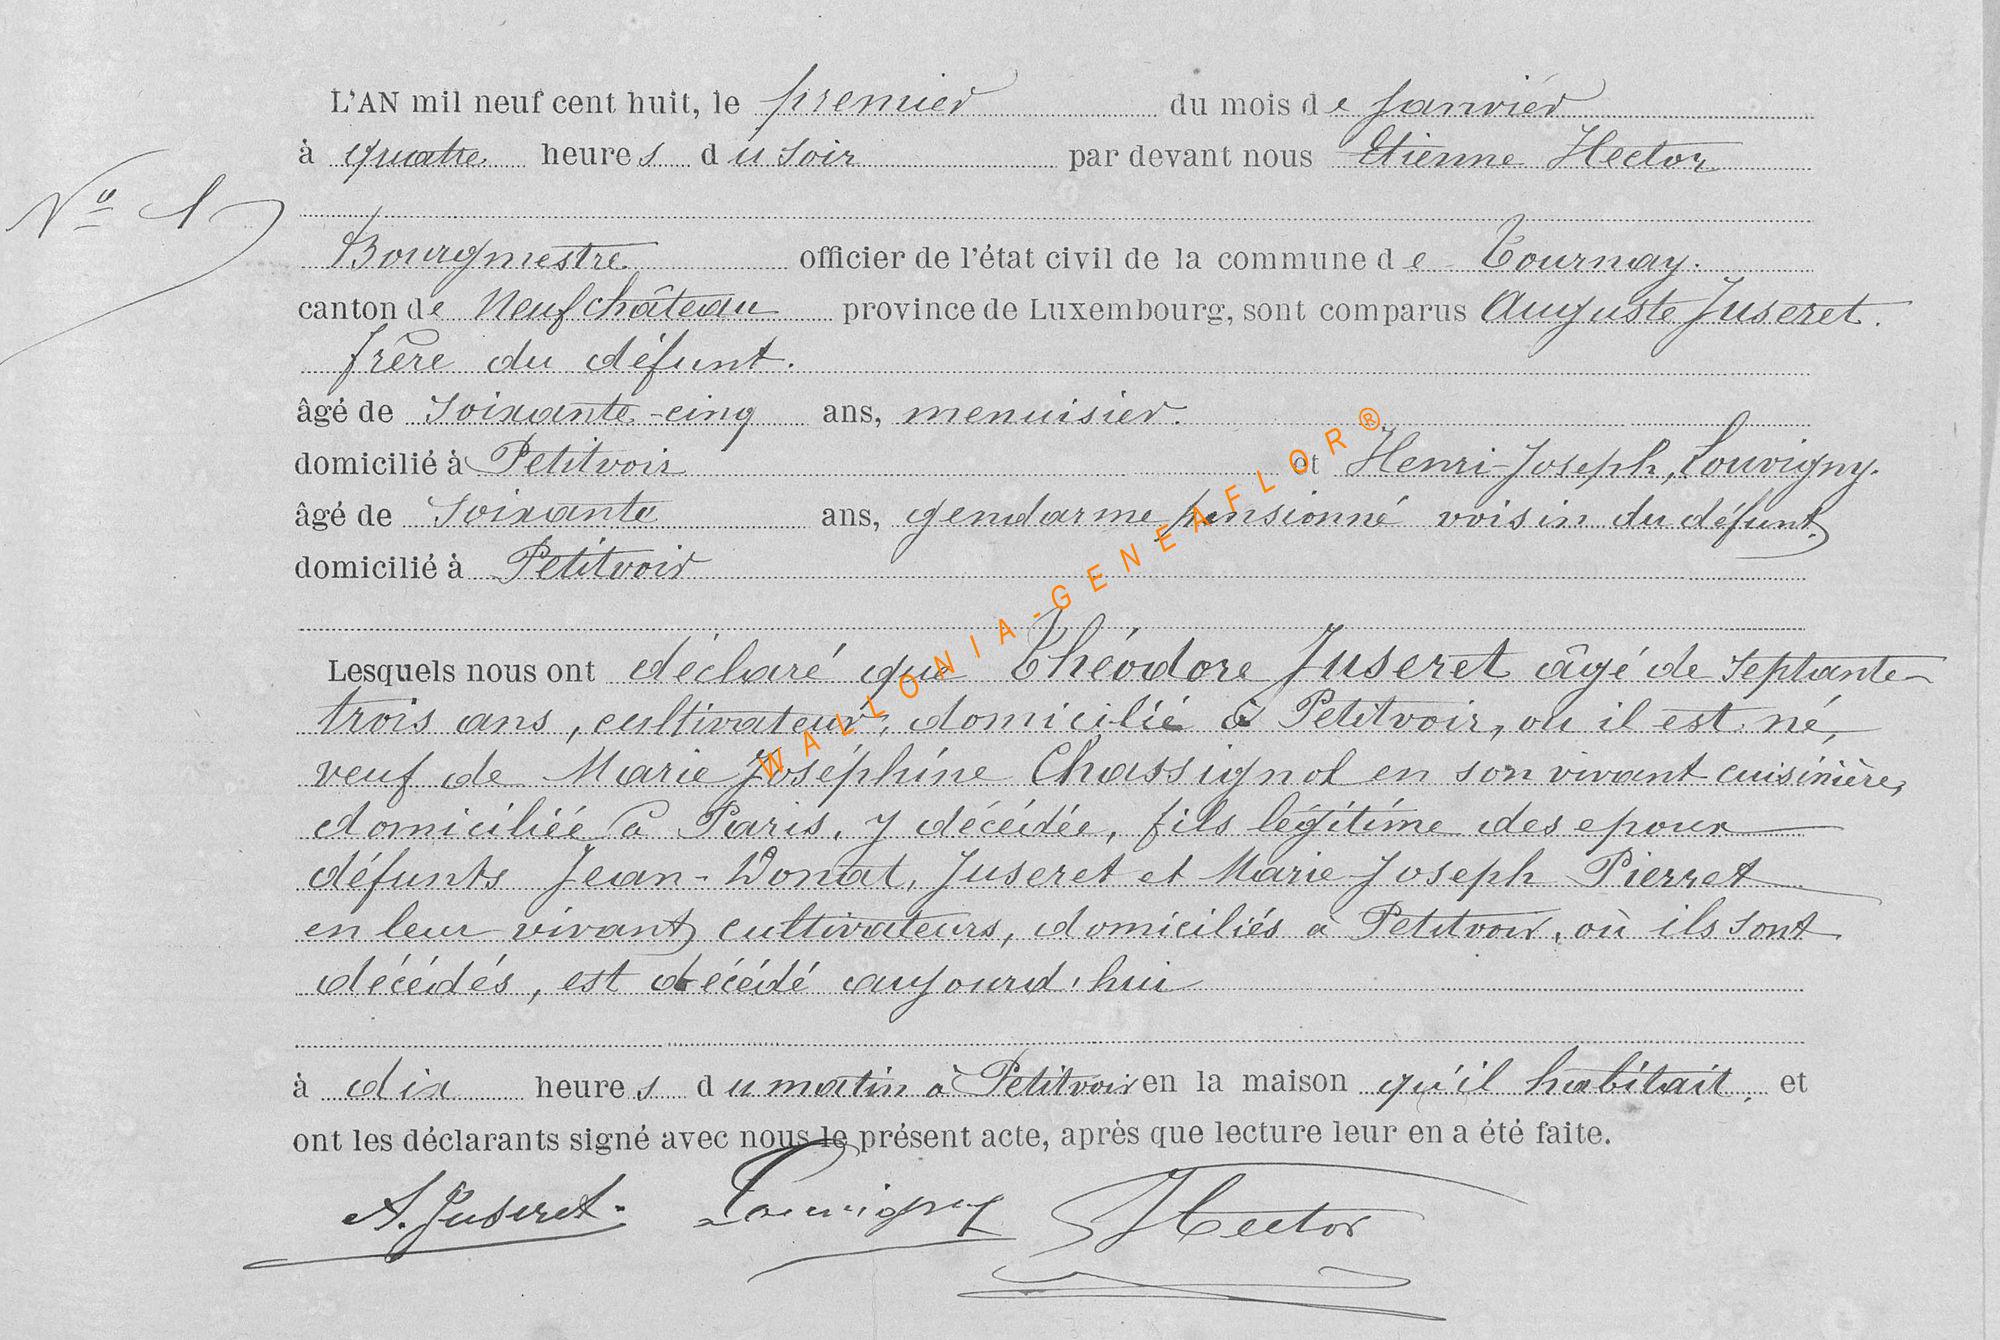 L'AN mil neuf cent huit, le premier du mois de Janvier
à quatre heures du soir par devant nous Etienne Hector
Nº 1
Bourgmestre officier de l'état civil de la commune de Tournay.
canton de Neufchâteau province de Luxembourg, sont comparus Auguste Juseret.
frère du défunt.
âgé de soixante-cinq ans, menuisier.
domicilié à Petitvoir et Henri-Joseph, Louvigny.
âgé de soixante ans, gendarme pensionné voisin du défunt.
domicilié à Petitvoir
WALLONIA-GENEAFLOR®
Lesquels nous ont déclaré que Théodore Juseret âgé de septante-
trois ans, cultivateur, domicilié à Petitvoir, où il est né,
veuf de Marie Joséphine Chassignol en son vivant cuisinière,
domiciliée à Paris, y décédée, fils légitime des epoux
défunts Jean-Donat, Juseret et Marie Joseph Pierret
en leur vivant cultivateurs, domiciliés à Petitvoir, où ils sont
décédés, est décédé aujourd'hui
à dix heures du matin à Petitvoir en la maison qu'il habitait, et
ont les déclarants signé avec nous le présent acte, après que lecture leur en a été faite.
A. Juseret. Louvigny Hector